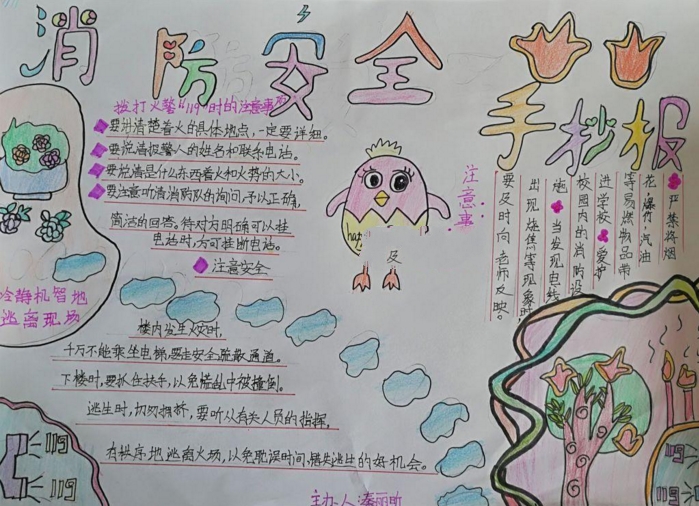 消防安全
手抄报
拨打火警"119"时的注意事项
要讲清楚着火的具体地点,一定要详细。
要说清报警人的姓名和联系电话。
要说清是什么东西着火和火势的大小。
要注意听清消防队的询问,予以正确,
简洁的回答。待对方明确可以挂
电话时,方可挂断电话。
注意安全
冷静机智地
逃离现场
楼内发生火灾时,
千万不能乘坐电梯,要走安全疏散通道。
下楼时,要抓住扶手,以免慌乱中被撞倒。
逃生时,切勿拥挤,要听从有关人员的指挥,
有秩序地逃离火场,以免耽误时间,错失逃生的好机会。
注意事:
严禁将烟
花,爆竹,汽油
等易燃物品带
进学校 爱护
校园内的消防设
施 当发现电线
出现烧焦等现象时,
要及时向老师反映。
及
119
119
119
主办人